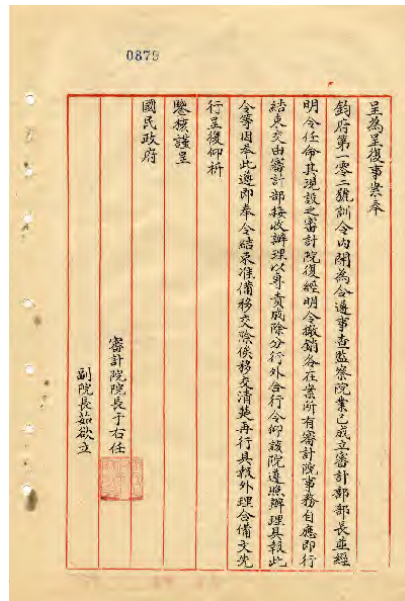 0879
呈為呈復事案奉
鈞府第一零二號訓令內開為令遵事查監察院業已成立審計部部長並經
明令任命其現設之審計院復經明令撤銷各在案所有審計院事務自應即行
結束交由審計部接收辦理以專責成除分行外合行令仰該院遵照辦理具報此
令等因奉此遵即奉令結束准備移交除俟移交清楚再行具報外理合備文先
行呈復仰祈
鑒核謹呈
國民政府
審計院院長于右任
副院長茹欲立